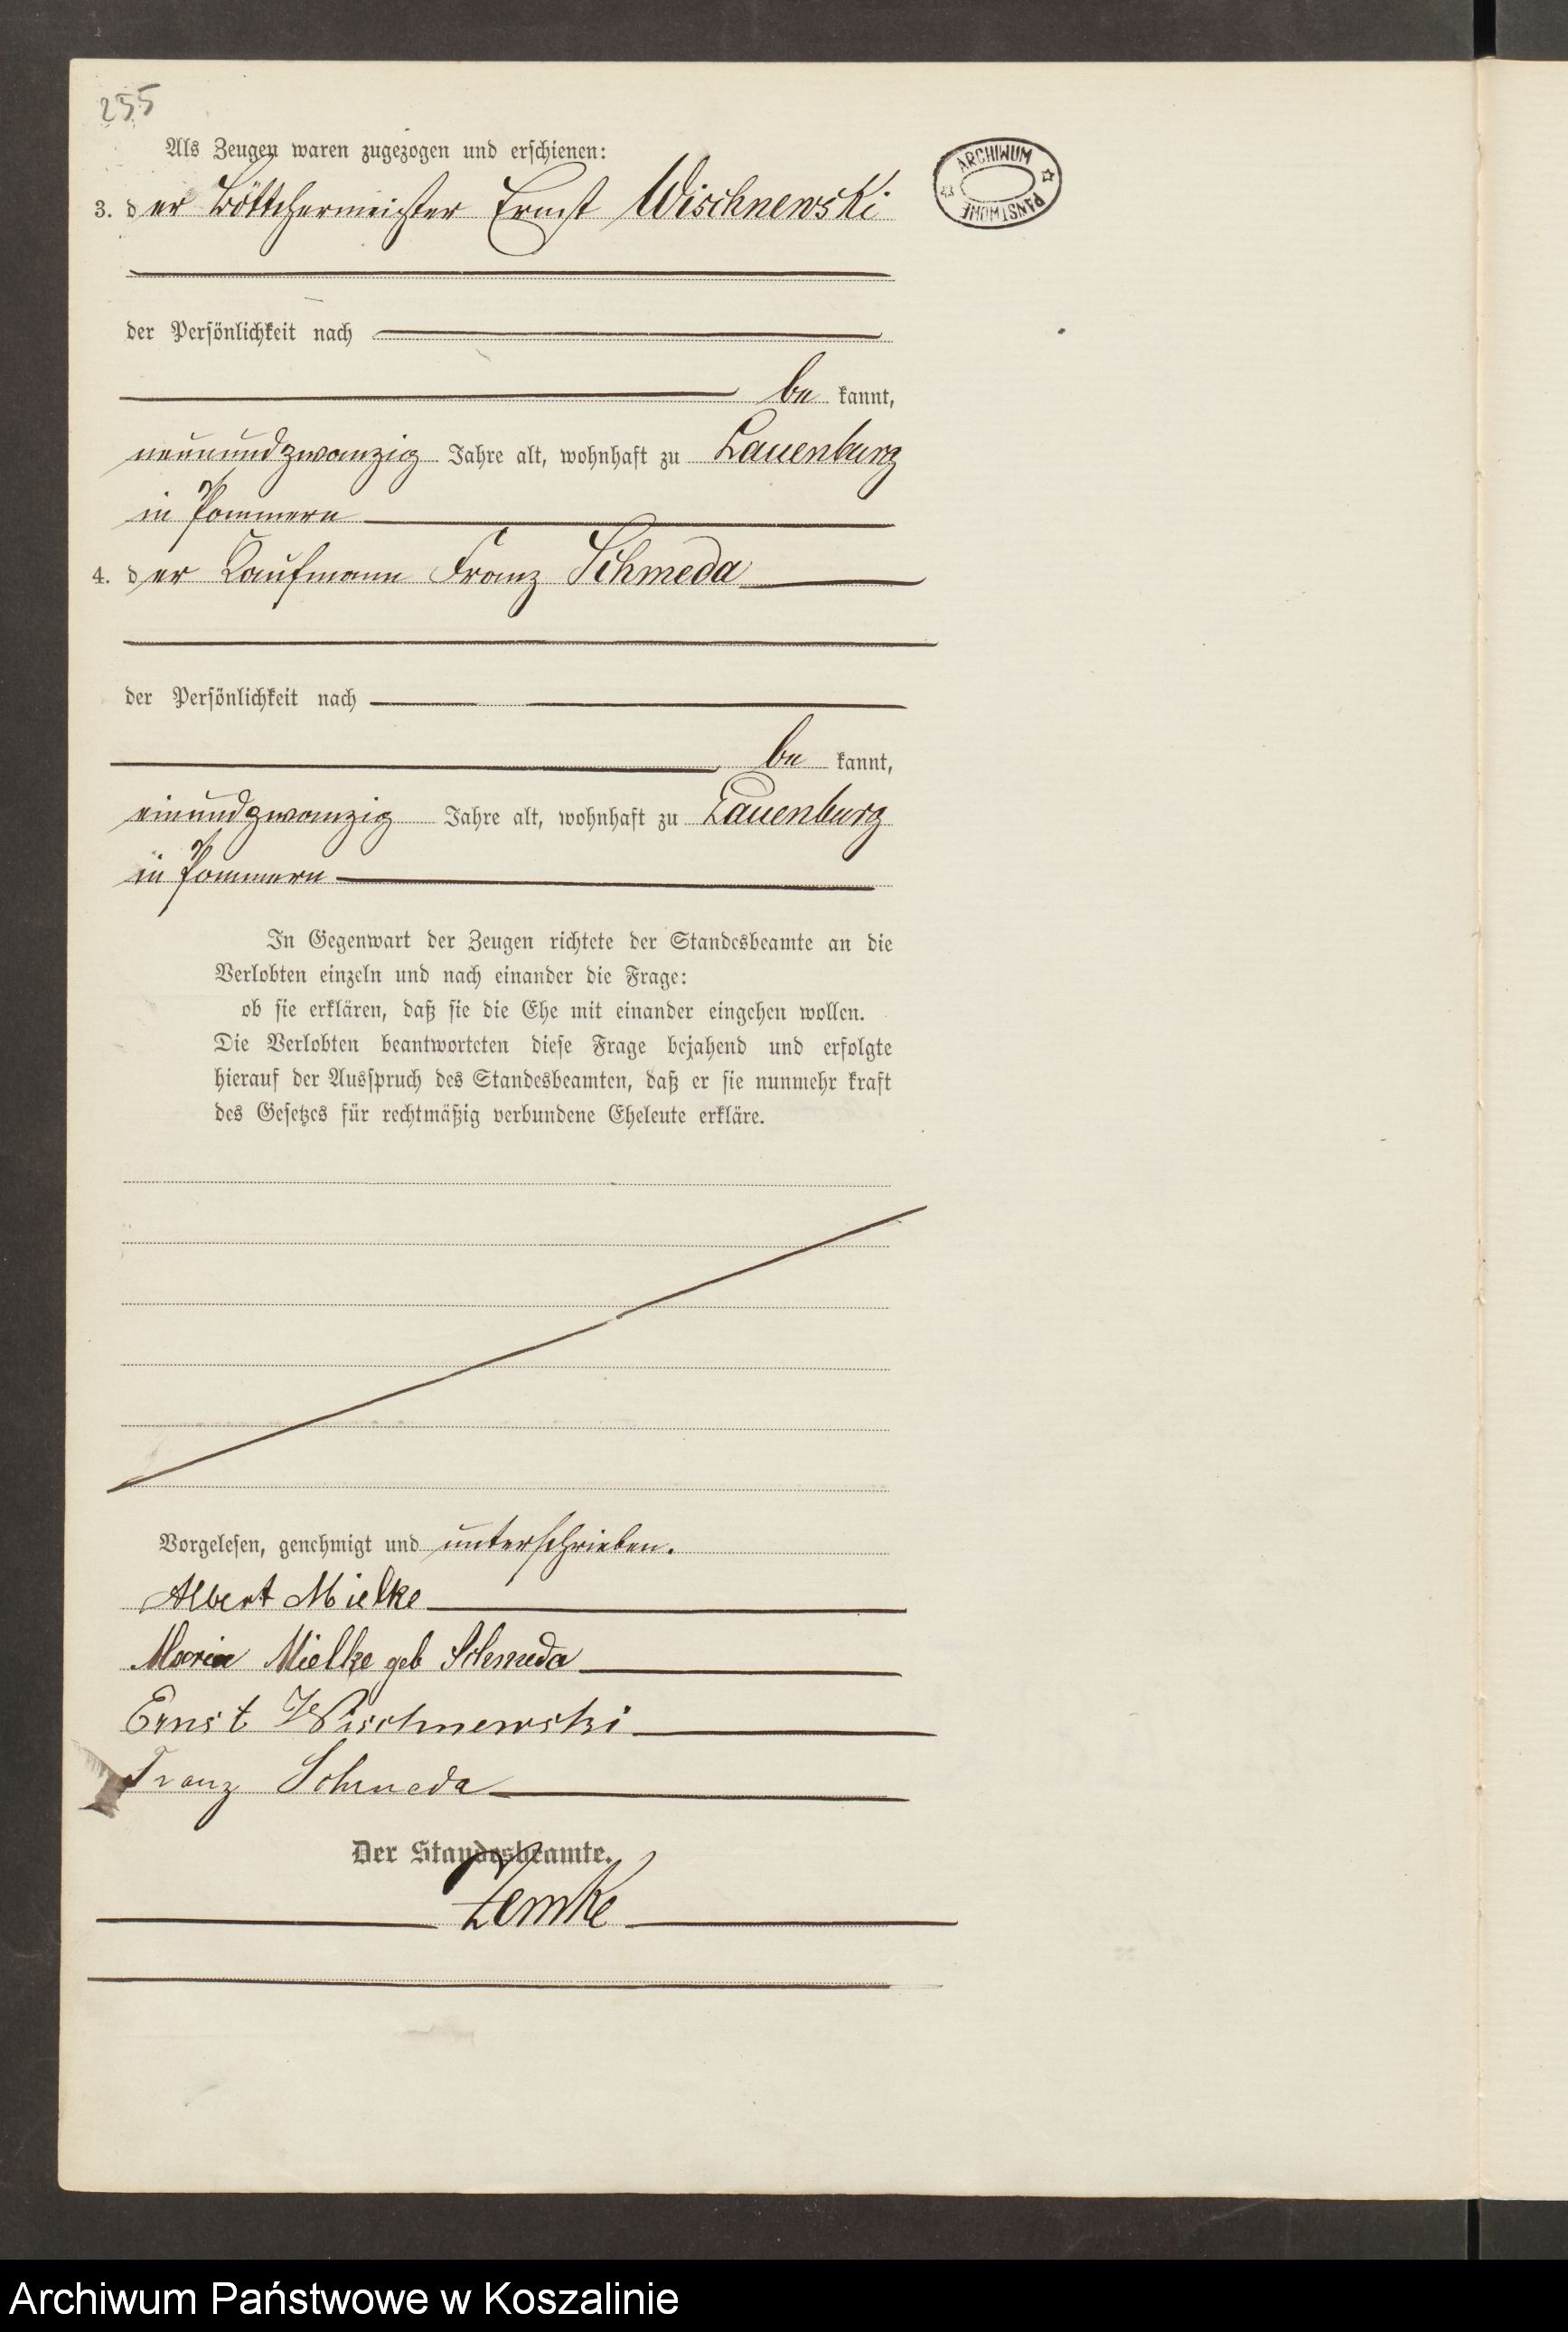 255
Als Zeugen waren zugezogen und erschienen:
3. der Böttchermeister Ernst Wischnewski
der Persönlichkeit nach
be kannt,
neunundzwanzig Jahre alt, wohnhaft zu Lauenburg
in Pommern
4. der Kaufmann Franz Schmeda
der Persönlichkeit nach
be kannt,
einundzwanzig Jahre alt, wohnhaft zu Lauenburg
in Pommern
In Gegenwart der Zeugen richtete der Standesbeamte an die
Verlobten einzeln und nach einander die Frage:
ob sie erklären, daß sie die Ehe mit einander eingehen wollen.
Die Verlobten beantworteten diese Frage bejahend und erfolgte
hierauf der Ausspruch des Standesbeamten, daß er sie nunmehr kraft
des Gesetzes für rechtmäßig verbundene Eheleute erkläre.
Vorgelesen, genehmigt und unterschrieben.
Albert Mielke
Maria Mielke geb Schmeda
Ernst Wischnewski
Franz Schmeda
Der Standesbeamte.
Zemke
ARCHIWUM PAŃSTWOWE
Archiwum Państwowe w Koszalinie